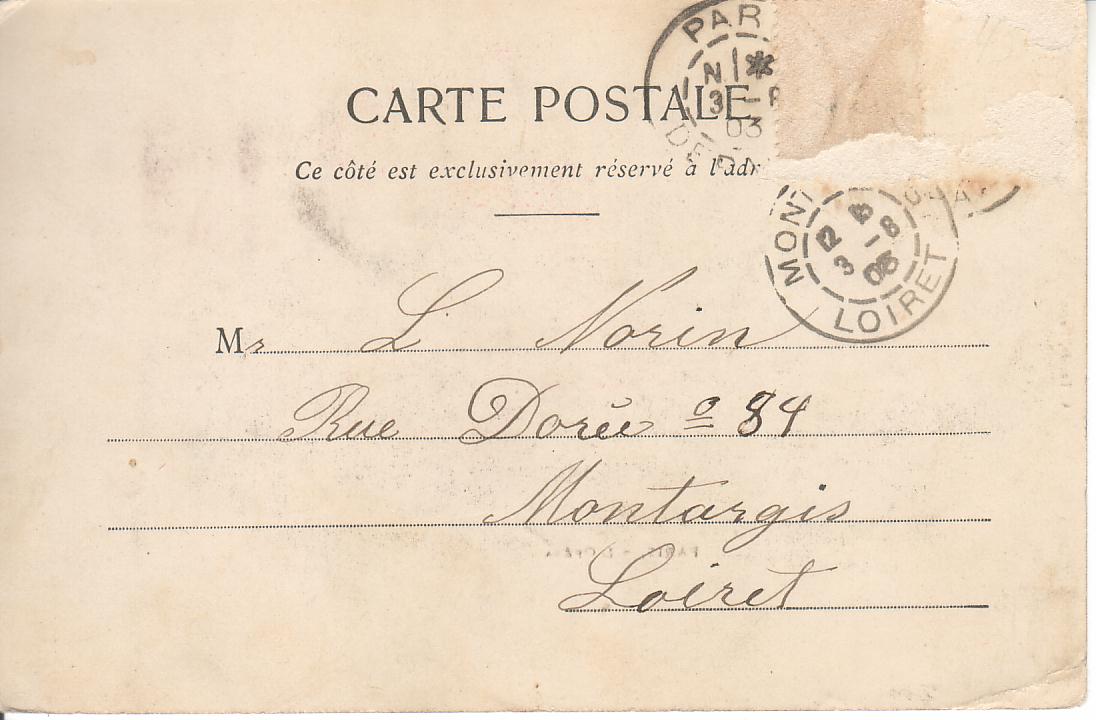 PAR
N *
3 -
03
DE
CARTE POSTALE
Ce côté est exclusivement réservé à l'adr
MONT
12 3
3 -8
03
LOIRET
Mr L Norin
Rue Dorée º 84
Montargis
Loiret